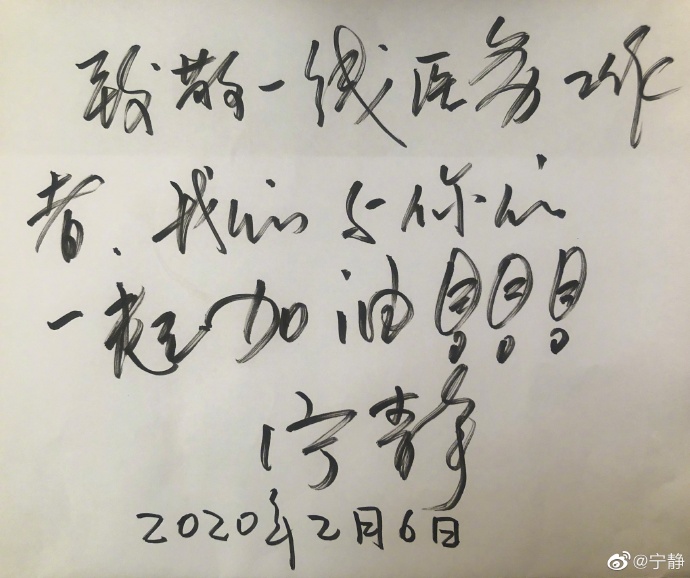 致敬一线医务工作
者、我们与你们
一起加油！！！
宁静
2020年2月6日
@宁静